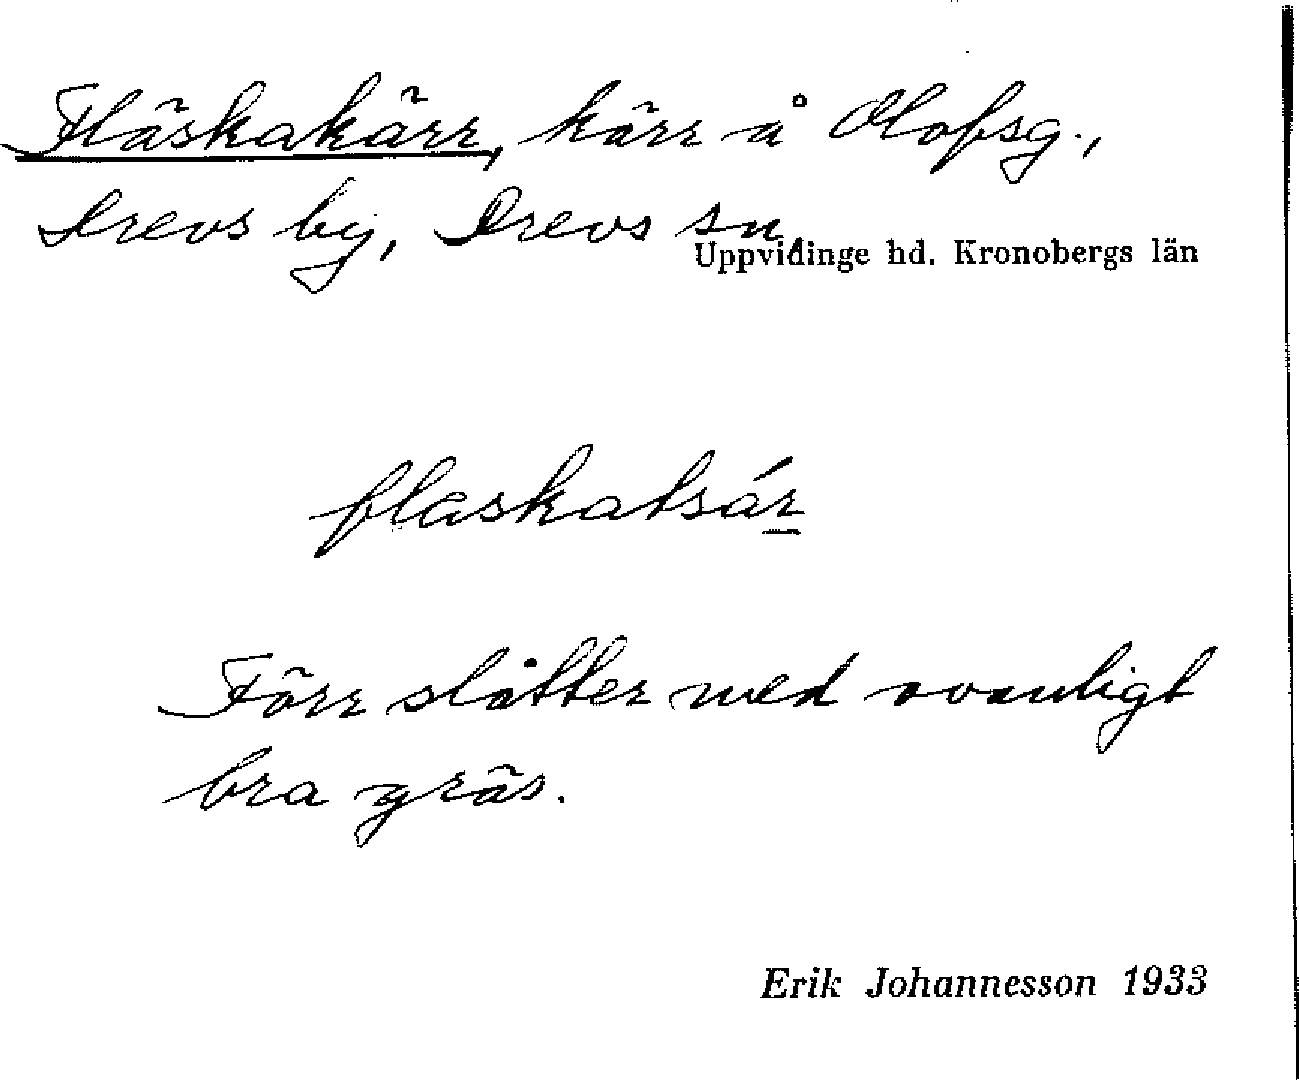 Fläskakärr, kärr å Olofsg.,
Drevs by, Drevs sn.
Uppvidinge hd. Kronobergs län
flaskatsár
Förr slåtter med ovanligt
bra gräs.
Erik Johannesson 1933